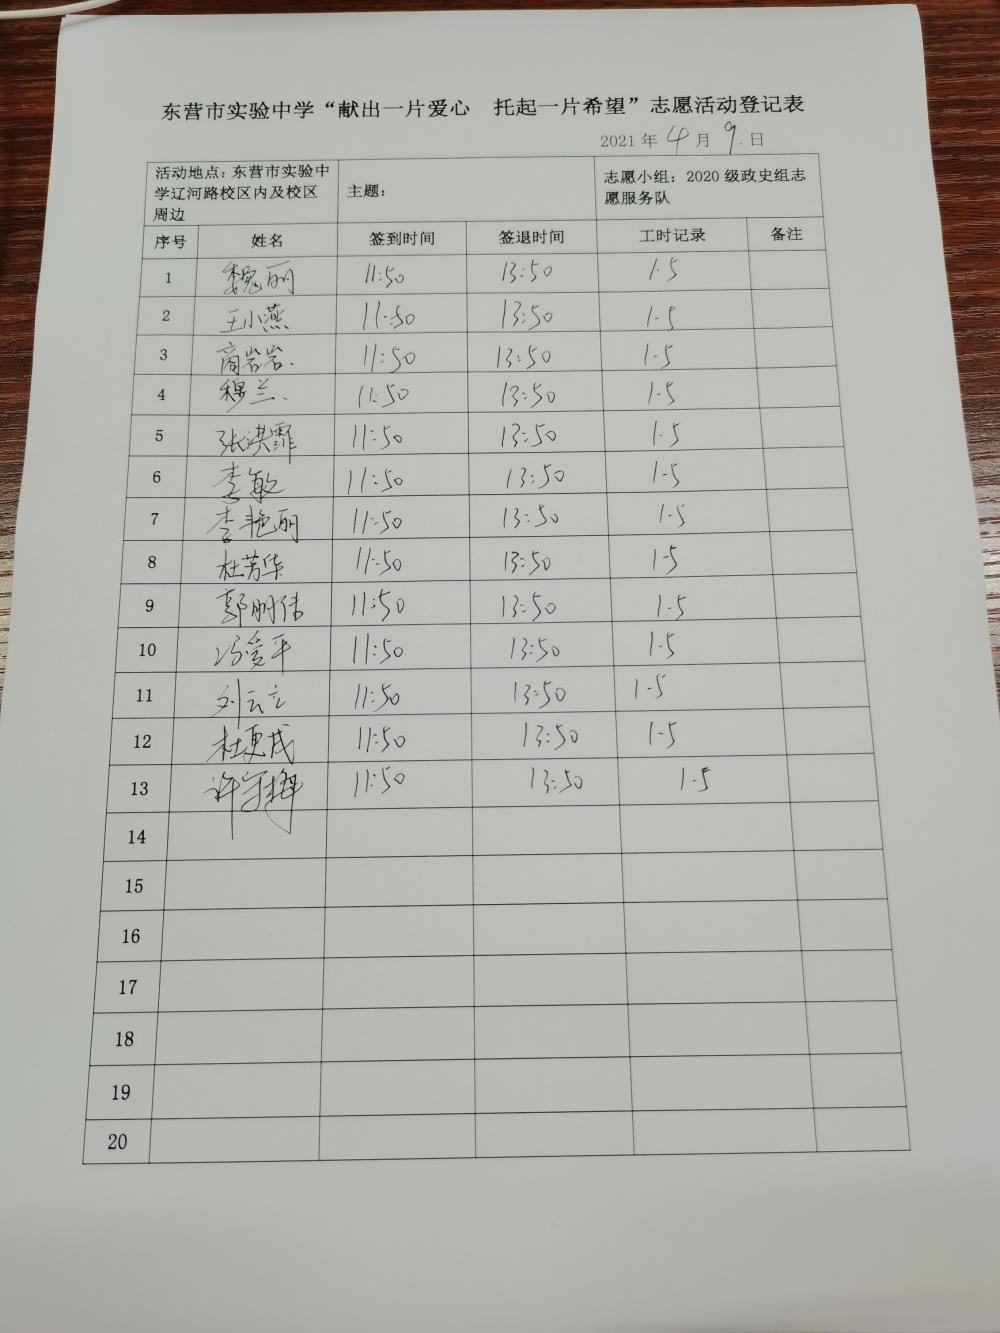 东营市实验中学“献出一片爱心 托起一片希望”志愿活动登记表
2021 年 4 月 9 日
活动地点：东营市实验中
学辽河路校区内及校区
周边
主题：
志愿小组：2020 级政史组志
愿服务队
序号 姓名 签到时间 签退时间 工时记录 备注
1 魏丽 11:50 13:50 1.5
2 王小燕 11:50 13:50 1.5
3 商岩岩 11:50 13:50 1.5
4 穆兰 11:50 13:50 1.5
5 张洪霏 11:50 13:50 1.5
6 李敏 11:50 13:50 1.5
7 李艳丽 11:50 13:50 1.5
8 杜芳华 11:50 13:50 1.5
9 郭明伟 11:50 13:50 1.5
10 冯爱平 11:50 13:50 1.5
11 刘云立 11:50 13:50 1.5
12 杜更戌 11:50 13:50 1.5
13 11:50 13:50 1.5
14
15
16
17
18
19
20